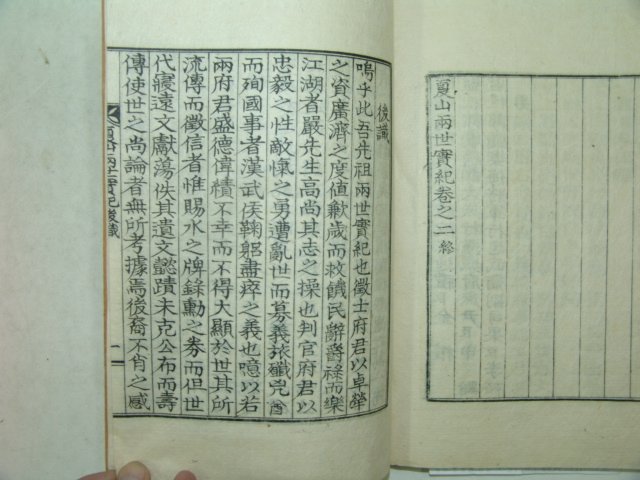 夏山兩世實紀卷之二 終
後識
嗚乎此吾先祖兩世實紀也徵士府君以卓犖
之資廣濟之度值歉歲而救饑民辭爵祿而樂
江湖者嚴先生高尚其志之操也判官府君以
忠毅之性敵愾之勇遭亂世而募義旅殲兇酋
而殉國事者漢武侯鞠躬盡瘁之義也噫以若
兩府君盛德偉績不幸而不得大顯於世其所
流傳而徵信者惟賜水之牌錄勳之券而但世
代寢遠文獻蕩佚其遺文懿蹟未克公布而壽
傳使世之尚論者無所考據焉後裔不肖之感
夏山兩世實紀後識
一